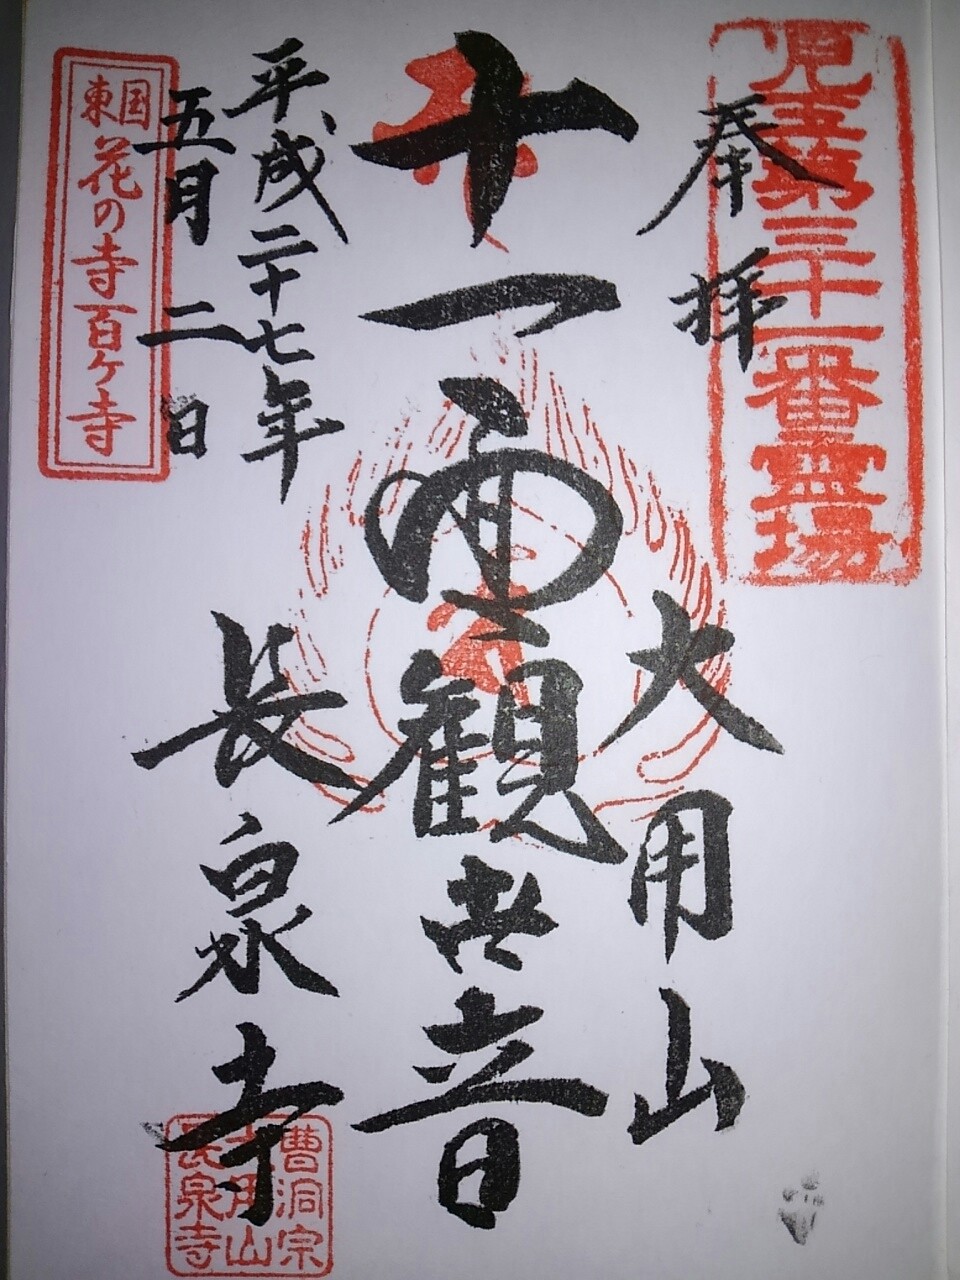 児玉第三十一番霊場
奉拝
大用山
十一面観世音
平成二十七年
五月二日
長泉寺
東国花の寺百ヶ寺
曹洞宗
大用山
長泉寺